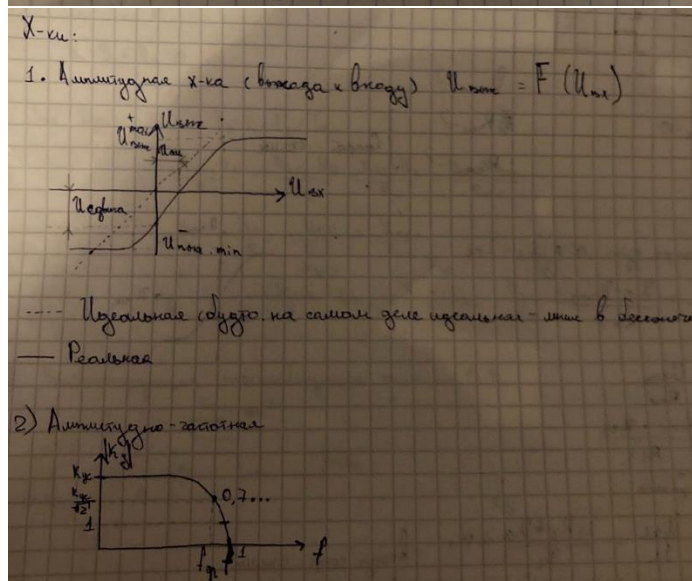 Х-ки:
1. Амплитудная х-ка (выхода к входу) Uвых = F (Uвх)
Uвых
Uвх
Uсдвига
---- Идеальная (будто. на самом деле идеальная - линия в бесконеч
— Реальная
2) Амплитудно-частотная
Kу
Kус
Kус/√2
0,7...
1
fгр
1
f